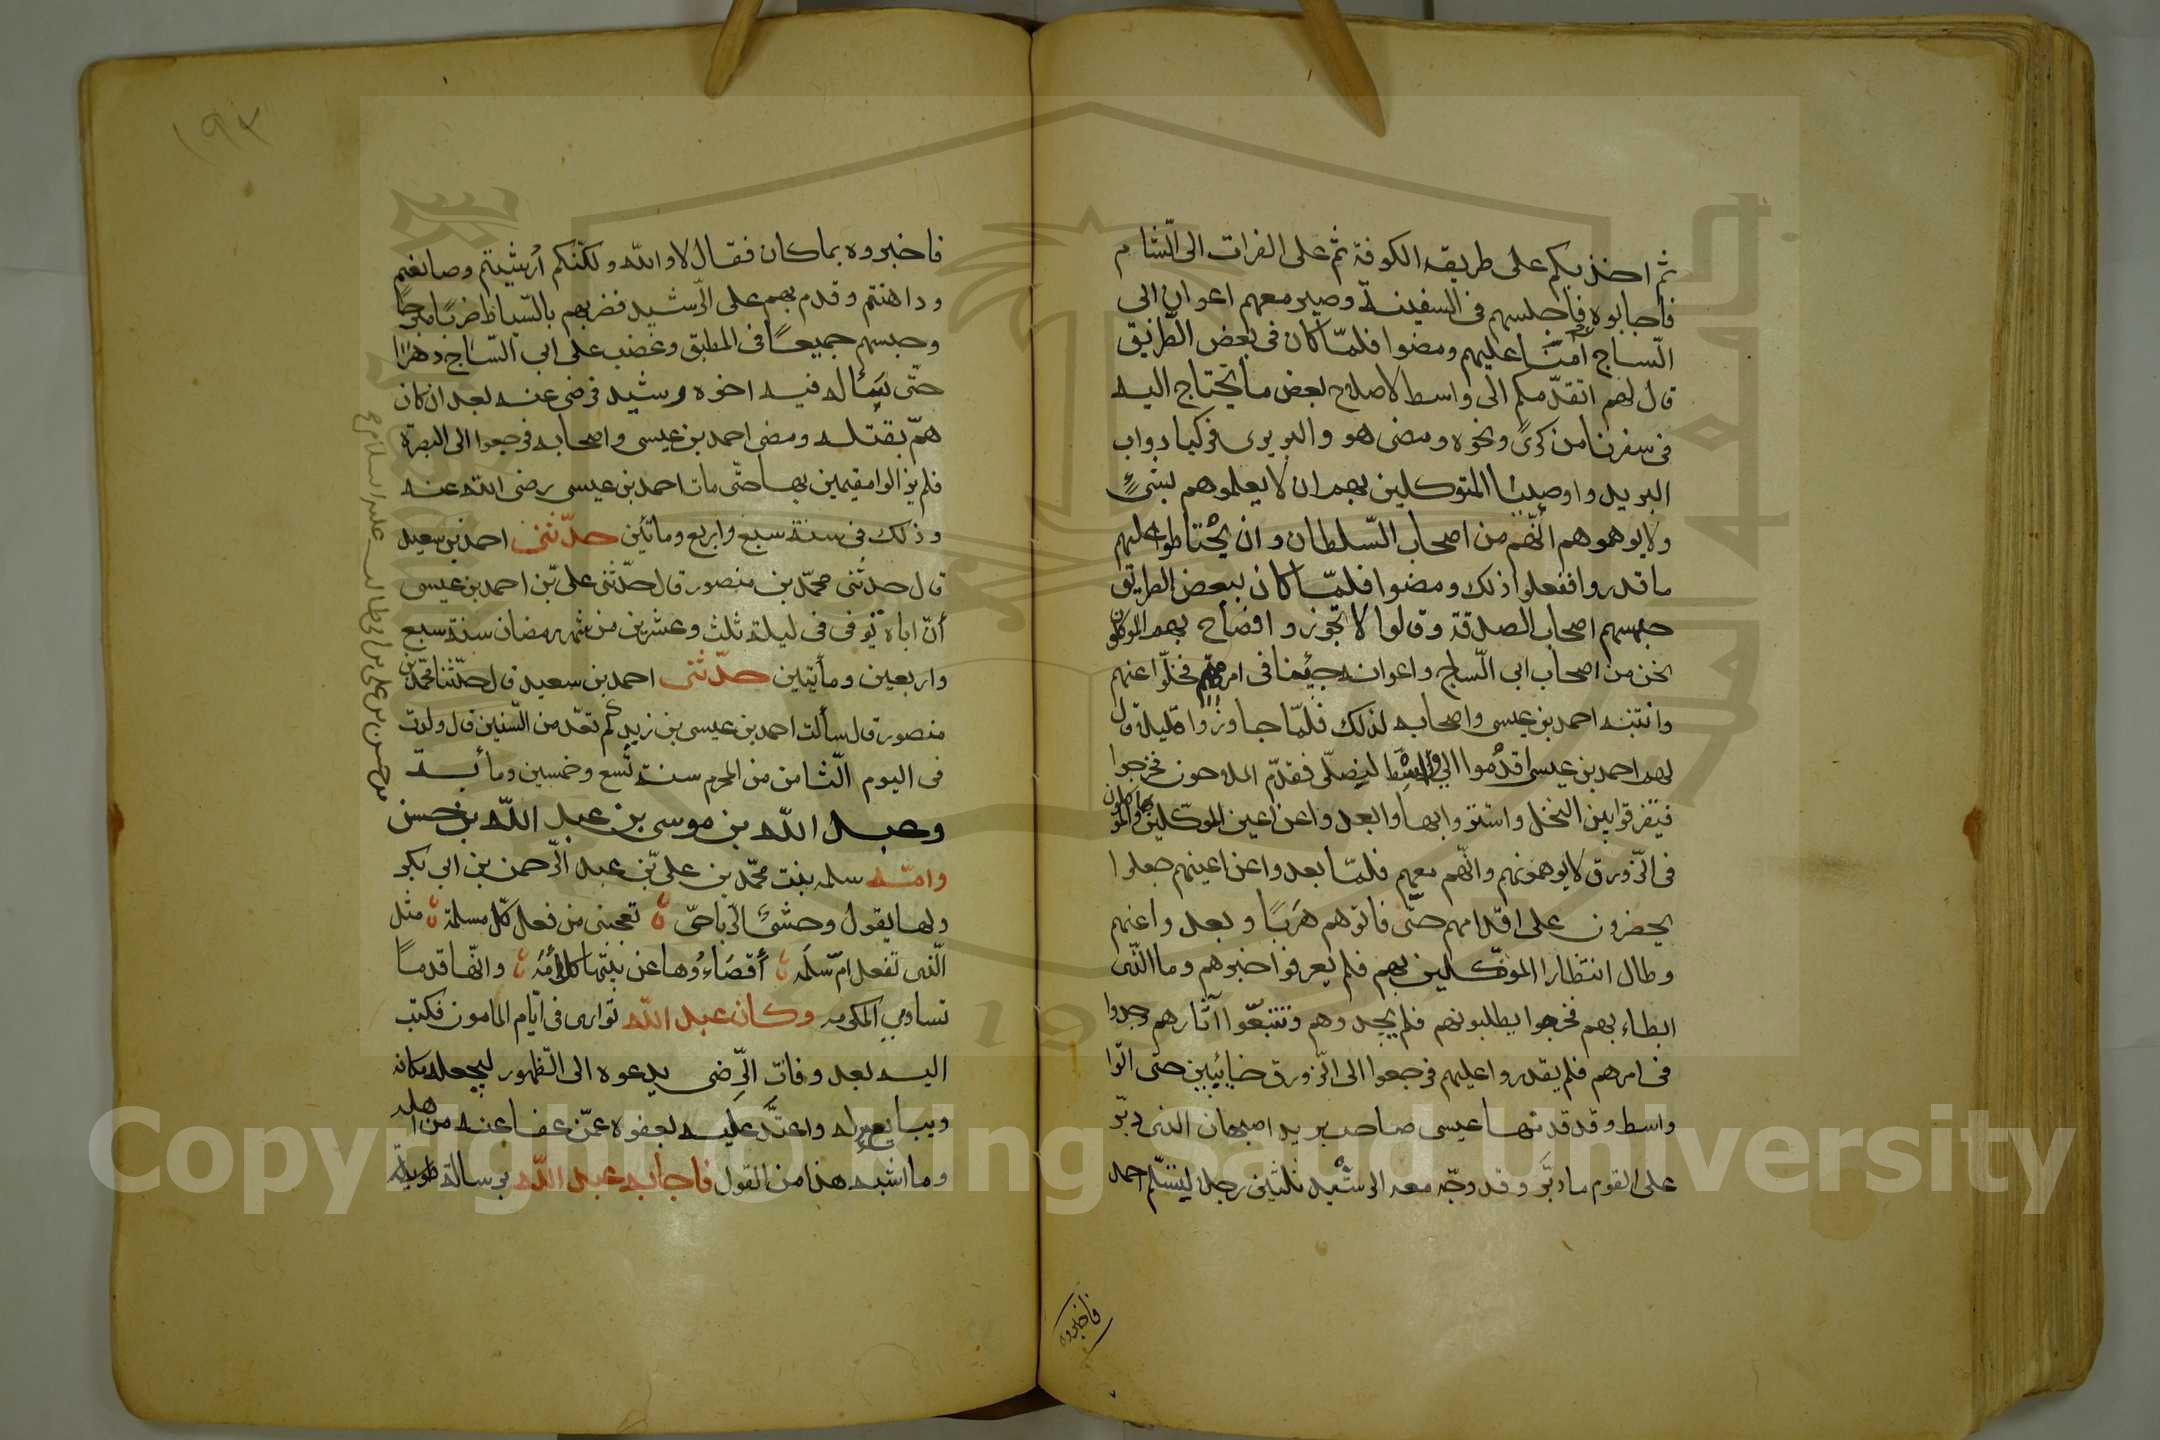 ثم اخذ بكم على طريقه الكوفة ثم على الفرات الى الشام
فاجابوه فاجلسهم فى السفينة وصير معهم اعوان ابى
الساج امنا عليهم ومضوا فلما كان فى بعض الطريق
قال لهم اتقدمكم الى واسط لاصلاح بعض ما يحتاج اليه
فى سفرنا من كرى ونحوه ومضى هو والبربرى فركبا دواب
البريد واوصينا المتوكلين بهم ان لا يعلموهم بشئ
ولا يوهموهم انهم من اصحاب السلطان وان يحتاطوا عليهم
ما قدروا ففعلوا ذلك ومضوا فلما كان ببعض الطريق
حبسهم اصحاب الصدقة وقالوا لا تجوز وا فصاح بهم الموكلون
نحن من اصحاب ابى الساج واعوانه جئنا فى امر مهم فخلوا عنهم
وانتبه احمد بن عيسى واصحابه لذلك فلما جاوزوا قليلا قال
لهم احمد بن عيسى اقدموا الى الشط ليصلى فقدم الملاحون فخرجوا
فتفرقوا بين النخل واستتروا بها وابعدوا عن اعين الموكلين بها والموكلون
فى الزورق لا يوهمونهم وانهم معهم فلما بعدوا عن اعينهم جعلوا
يحضرون على اقدامهم حتى فاتوهم هربا وبعدوا عنهم
وطال انتظار الموكلين بهم فلم يعرفوا خبرهم وما الذى
ابطاء بهم فخرجوا يطلبونهم فلم يجدوهم وتتبعوا آثارهم وجدوا
فى امرهم فلم يقدروا عليهم فرجعوا الى الزورق خائبين حتى اتوا
واسط وقد قدمها عيسى صاحب بريد اصبهان الذى دبر
على القوم ما دبر وقد وجه معه الرشيد ثلثين رجلا ليتسلم احمد
فاخبروه
١٩٢
فاخبروه بما كان فقال لا والله ولكنكم ارشيتم وصانعتم
وداهنتم وقدم بهم على الرشيد فضربهم بالسياط ضربا مبرحا
وحبسهم جميعا فى المطبق وغضب على ابى الساج دهرا
حتى سأله فيه اخوه رشيد فرضى عنه بعد ان كان
هم بقتله ومضى احمد بن عيسى واصحابه فرجعوا الى البصرة
فلم يزالوا مقيمين بها حتى مات احمد بن عيسى رضى الله عنه
وذلك فى سنة سبع واربع ومأتين حدثنى احمد بن سعيد
قال حدثنى محمد بن منصور قال حدثنى على بن احمد بن عيسى
أن اباه توفى فى ليلة ثلث وعشرين من شهر رمضان سنة سبع
واربعين ومأيتين حدثنى احمد بن سعيد قال حدثنا محمد بن
منصور قال سألت احمد بن عيسى بن زيد كم تعد من السنين قال ولدت
فى اليوم الثامن من المحرم سنة تسع وخمسين ومأية
وعبد الله بن موسى بن عبد الله بن حسن
بن حسن بن على بن ابى طالب عليه السلام
وامه سلمه بنت محمد بن على بن عبد الرحمن بن ابى بكر
ولها يقول تعجبنى من فعل كل مسلمة مثل
الذى تفعل ام سلمه أقصاءها عن بيتها كل أمه وانها قدما
تساوى المكرمه وكان عبد الله توارى فى ايام المامون فكتب
اليه بعد وفات الرضى يدعوه الى الظهور ليجعله مكانه
ويبايع له واعتد عليه بعفوه عمن عفا عنه من اهله
وما اشبه هذا من القول فاجابه عبد الله برسالة طويلة
Copyright © King Saud University